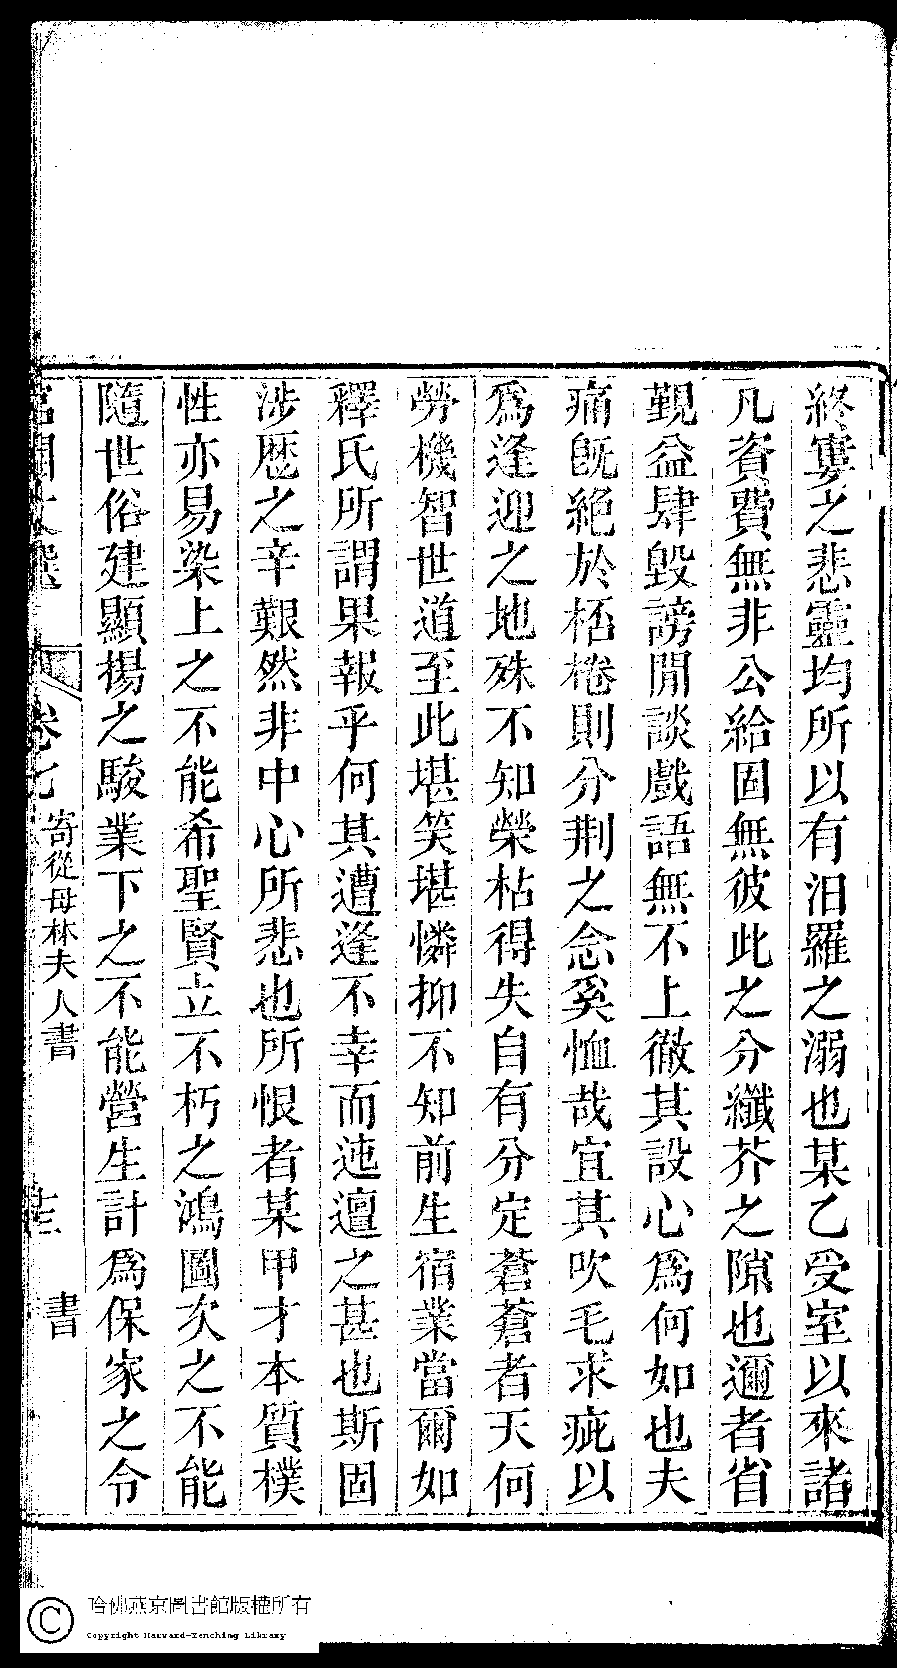 終寠之悲靈均所以有汨羅之溺也某乙受室以來諸
凡資費無非公給固無彼此之分纖芥之隙也邇者省
覲益肆毀謗閒談戲語無不上徹其設心爲何如也夫
痛旣絶於桮棬則分荆之念奚恤哉宜其吹毛求疵以
爲逢迎之地殊不知榮枯得失自有分定蒼蒼者天何
勞機智世道至此堪笑堪憐抑不知前生宿業當爾如
釋氏所謂果報乎何其遭逢不幸而迍邅之甚也斯固
涉歴之辛艱然非中心所悲也所恨者某甲才本質樸
性亦易染上之不能希聖賢立不朽之鴻圖次之不能
隨世俗建顯揚之駿業下之不能營生計爲保家之令
卷七 寄從母林夫人書 書
哈佛燕京圖書館版權所有
Copyright Harvard-Yenching Library